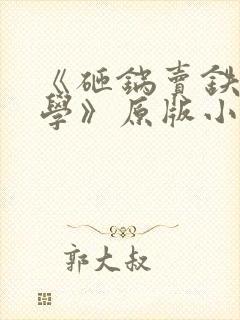 《砸鍋賣鉄
學》原版小
郭大叔